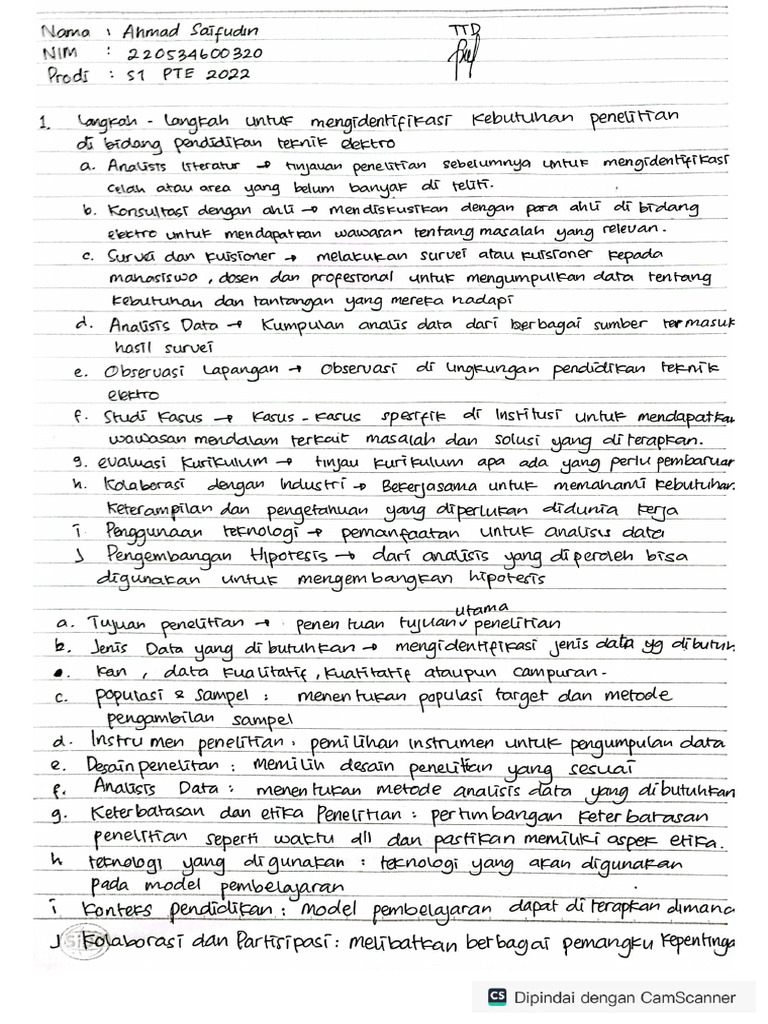 Nama : Ahmad Saifudin
TTD
NIM : 220534600320
Prodi : S1 PTE 2022
1. Langkah - langkah untuk mengidentifikasi kebutuhan penelitian
di bidang pendidikan teknik elektro
a. Analisis literatur → tinjauan penelitian sebelumnya untuk mengidentifikasi
celah atau area yang belum banyak di teliti.
b. Konsultasi dengan ahli → mendiskusikan dengan para ahli di bidang
elektro untuk mendapatkan wawasan tentang masalah yang relevan.
c. Survei dan kuisioner → melakukan survei atau kuisioner kepada
mahasiswa, dosen dan profesional untuk mengumpulkan data tentang
kebutuhan dan tantangan yang mereka hadapi
d. Analisis Data → Kumpulan analis data dari berbagai sumber termasuk
hasil survei
e. Observasi Lapangan → Observasi di lingkungan pendidikan teknik
elektro
f. Studi Kasus → Kasus - kasus spesifik di Institusi untuk mendapatka
wawasan mendalam terkait masalah dan solusi yang di terapkan.
g. evaluasi Kurikulum → tinjau kurikulum apa ada yang perlu pembaruar
h. Kolaborasi dengan Industri → Bekerjasama untuk memahami kebutuhan
keterampilan dan pengetahuan yang diperlukan didunia kerja
i Penggunaan teknologi → pemanfaatan untuk analisis data
J Pengembangan Hipotesis → dari analisis yang diperoleh bisa
digunakan untuk mengembangkan hipotesis
utama
a. Tujuan penelitian → penentuan tujuan penelitian
b. Jenis Data yang dibutuhkan → mengidentifikasi jenis data yg dibutuh
kan, data kualitatif, kuatitatif ataupun campuran.
c. populasi & sampel : menentukan populasi target dan metode
pengambilan sampel
d. Instrumen penelitian : pemilihan instrumen untuk pengumpulan data
e. Desain penelitan : memilih desain penelitian yang sesuai
f. Analisis Data : menentukan metode analisis data yang dibutuhkan
g. Keterbatasan dan etika Penelitian : pertimbangan keterbatasan
penelitian seperti waktu dll dan pastikan memiluki aspek etika.
h teknologi yang digunakan : teknologi yang akan digunakan
pada model pembelajaran
i Konteks pendidikan : model pembelajaran dapat di terapkan dimana
J Kolaborasi dan Partisipasi : melibatkan berbagai pemangku kepentinga
CS Dipindai dengan CamScanner